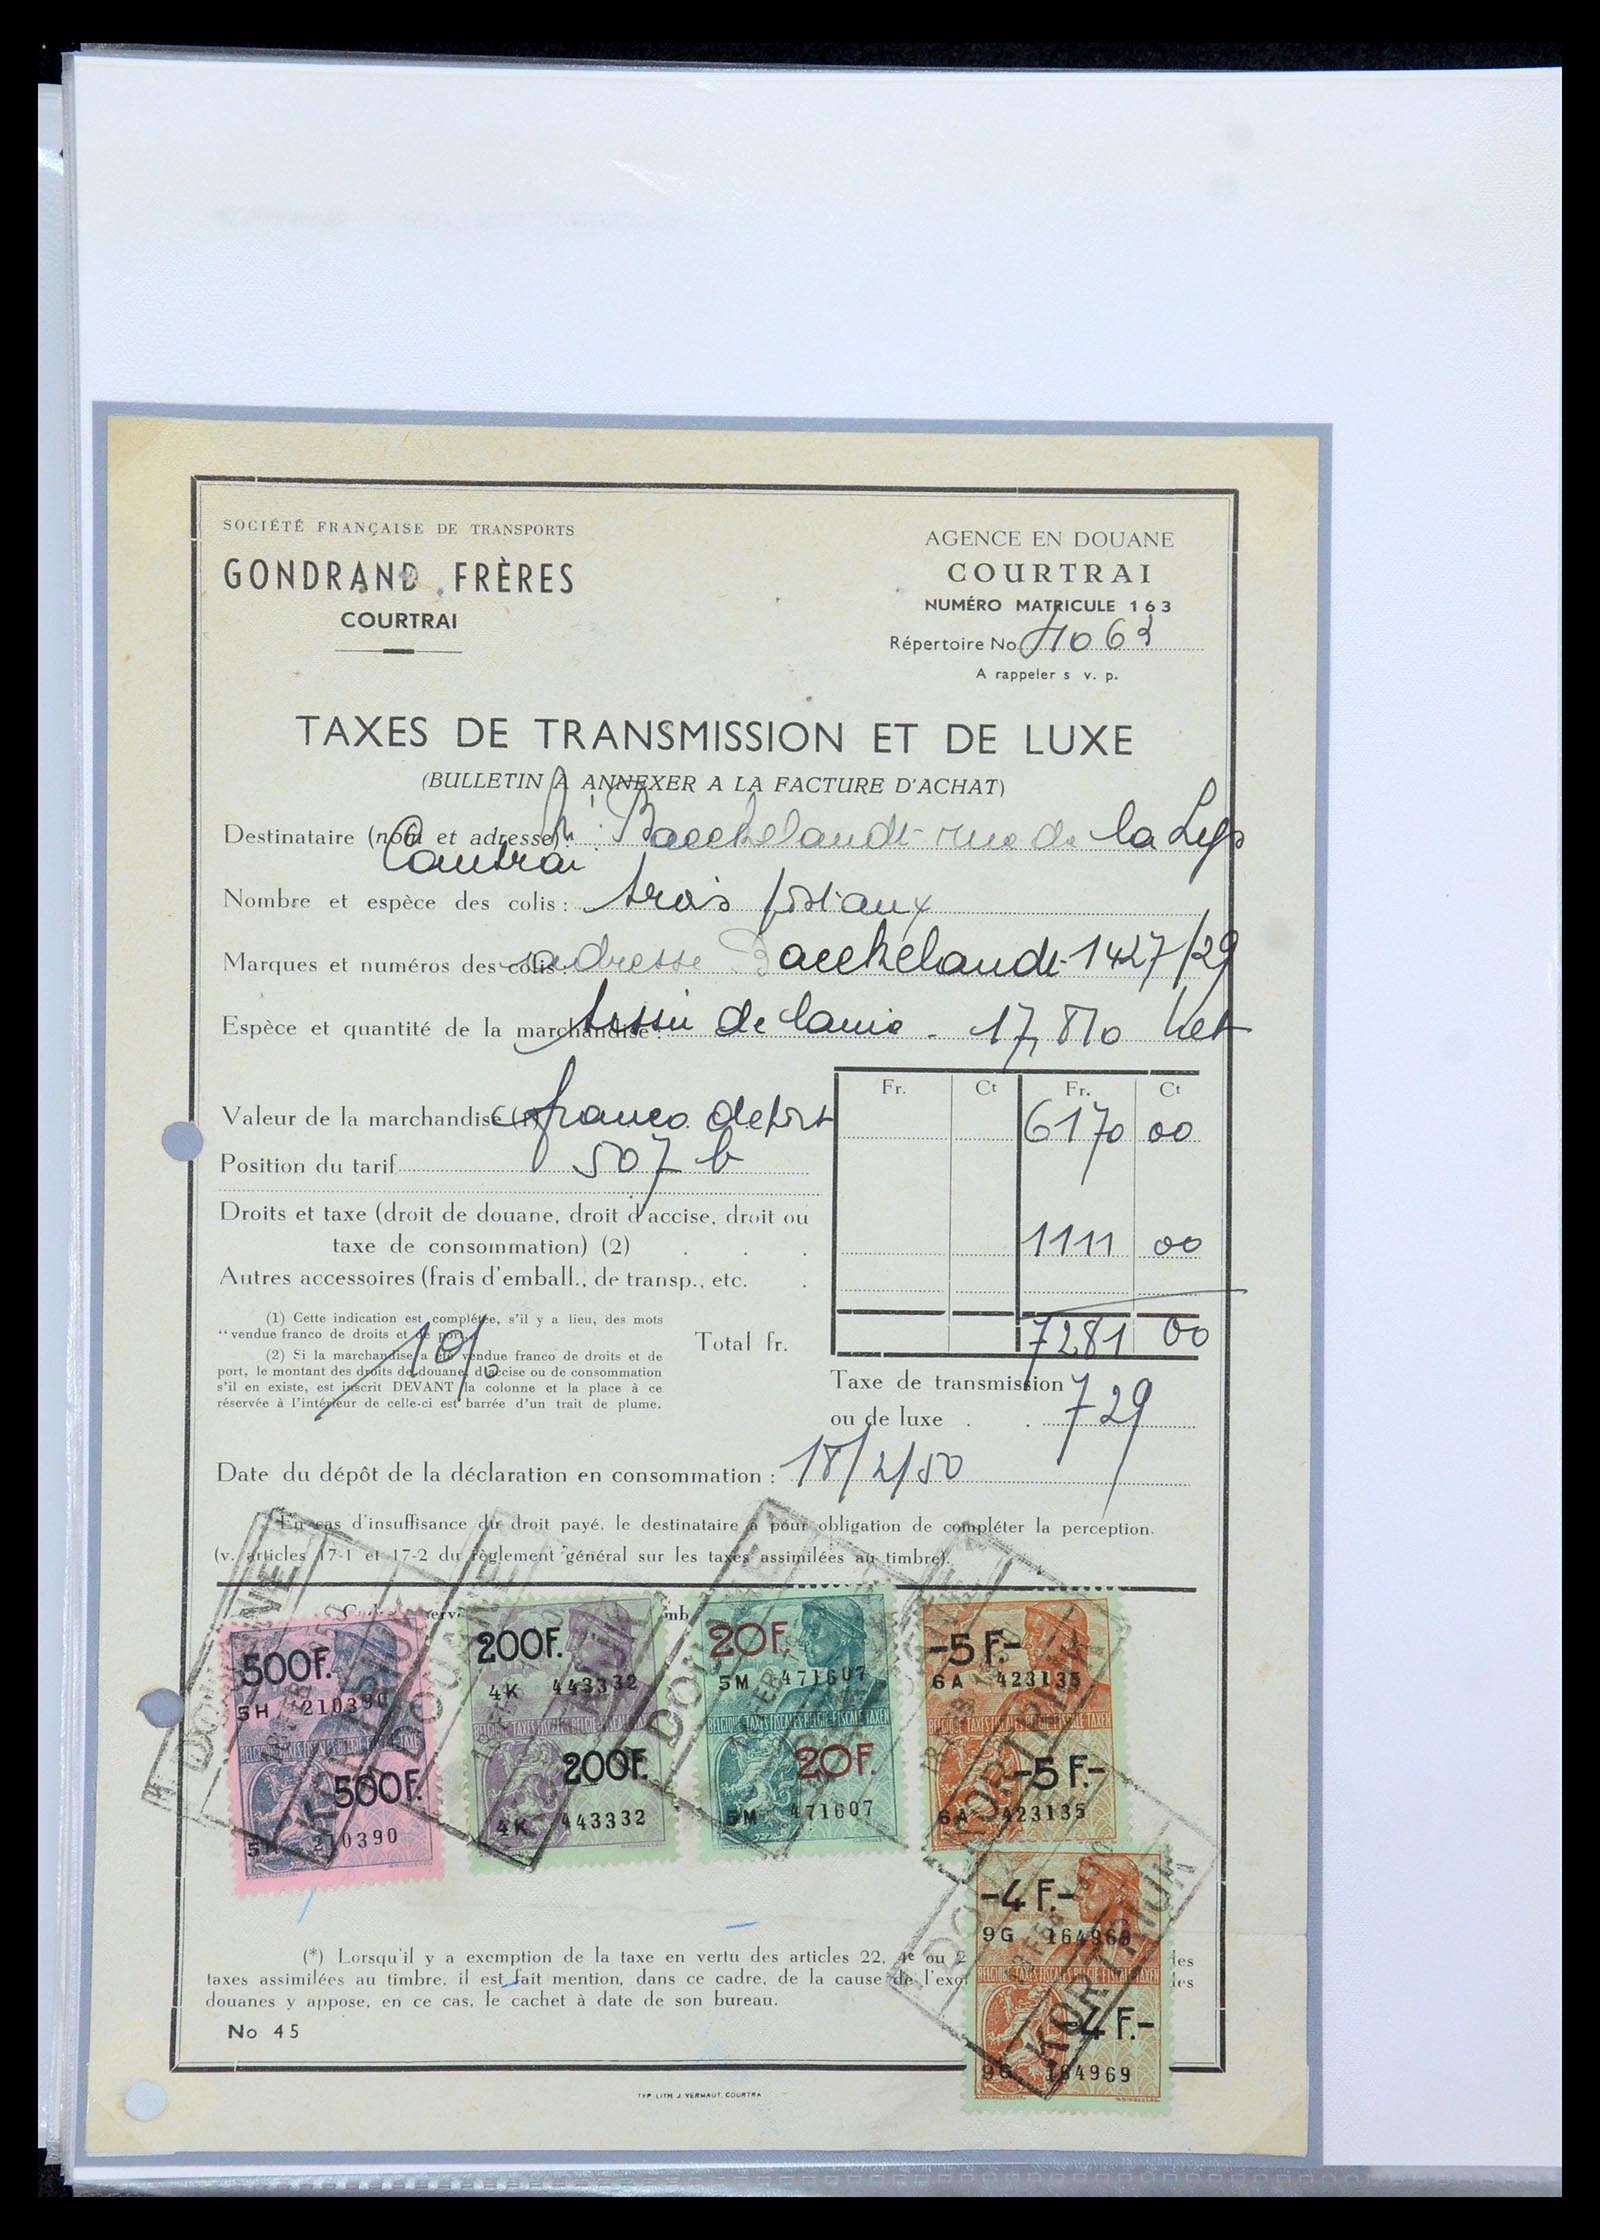 SOCIÉTÉ FRANÇAISE DE TRANSPORTS
GONDRAND FRÈRES
COURTRAI
AGENCE EN DOUANE
COURTRAI
NUMÉRO MATRICULE 163
Répertoire No 4063
A rappeler s v. p.
TAXES DE TRANSMISSION ET DE LUXE
(BULLETIN A ANNEXER A LA FACTURE D'ACHAT)
Destinataire (nom et adresse) : Baeckelandt rue de la Lys
Courtrai
Nombre et espèce des colis : trois postaux
Marques et numéros des colis adresse Baeckelandt 1427/29
Espèce et quantité de la marchandise : tissu de laine - 17,810 Net
Fr. Ct Fr. Ct
Valeur de la marchandise (1) franco de port 6170 00
Position du tarif 507 b
Droits et taxe (droit de douane, droit d'accise, droit ou
taxe de consommation) (2) . . . 1111 00
Autres accessoires (frais d'emball., de transp., etc. .
(1) Cette indication est complétée, s'il y a lieu, des mots
“vendue franco de droits et de port.
(2) Si la marchandise a été vendue franco de droits et de
port, le montant des droits de douane, d'accise ou de consommation
s'il en existe, est inscrit DEVANT la colonne et la place à ce
réservée à l'intérieur de celle-ci est barrée d'un trait de plume.
10%
Total fr. 7281 00
Taxe de transmission
ou de luxe . . 729
Date du dépôt de la déclaration en consommation : 18/2/50
En cas d'insuffisance du droit payé, le destinataire a pour obligation de compléter la perception.
(v. articles 17-1 et 17-2 du règlement général sur les taxes assimilées au timbre).
500F.
5H 210390
BELGIQUE TAXES FISCALES BELGIE FISCALE TAXEN
500F.
5H 210390
200F.
4K 443332
BELGIQUE TAXES FISCALES BELGIE FISCALE TAXEN
200F.
4K 443332
20F.
5M 471607
BELGIQUE TAXES FISCALES BELGIE FISCALE TAXEN
20F.
5M 471607
-5 F.-
6A 423135
BELGIQUE TAXES FISCALES BELGIE FISCALE TAXEN
-5 F.-
6A 423135
-4 F.-
9G 164969
BELGIQUE TAXES FISCALES BELGIE FISCALE TAXEN
-4 F.-
9G 164969
KORTRIJK
KORTRIJK
(*) Lorsqu'il y a exemption de la taxe en vertu des articles 22, 4e ou 2 des
taxes assimilées au timbre, il est fait mention, dans ce cadre, de la cause de l'exo les
douanes y appose, en ce cas, le cachet à date de son bureau.
No 45
TYP-LITH J. VERMAUT, COURTRAI